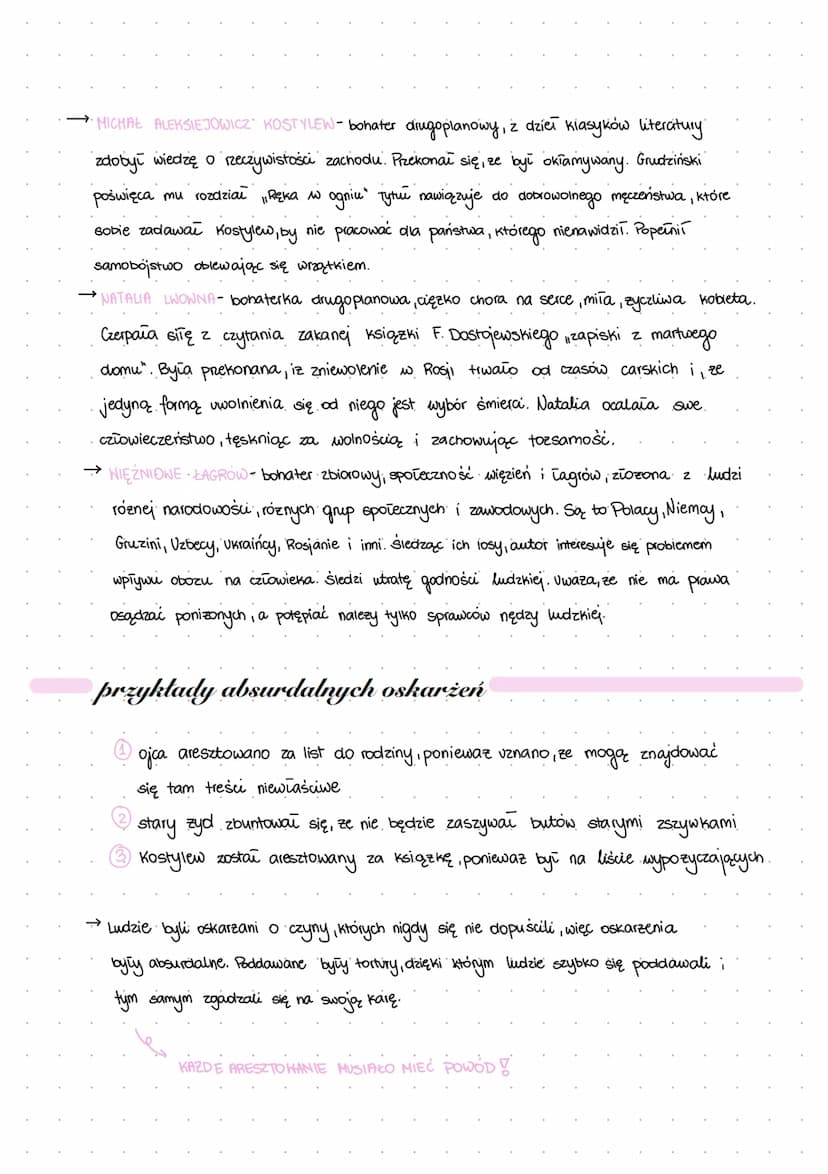 → MICHAŁ ALEKSIEJOWICZ KOSTYLEW - bohater drugoplanowy, z dzieł klasyków literatury
zdobył wiedzę o rzeczywistości zachodu. Przekonał się, że był okłamywany. Grudziński
poświęca mu rozdział „Ręka w ogniu" Tytuł nawiązuje do dobrowolnego męczeństwa, które
sobie zadawał Kostylew, by nie pracować dla państwa, którego nienawidził. Popełnił
samobójstwo oblewając się wrzątkiem.
→ NATALIA LWOWNA - bohaterka drugoplanowa, ciężko chora na serce, miła, życzliwa kobieta.
Czerpała siłę z czytania zakanej książki F. Dostojewskiego „zapiski z martwego
domu". Była przekonana, iż zniewolenie w Rosji trwało od czasów carskich i, że
jedyną formą uwolnienia się od niego jest wybór śmierci. Natalia ocalała swe
człowieczeństwo, tęskniąc za wolnością i zachowując tożsamość.
→ WIĘŹNIOWIE ŁAGRÓW - bohater zbiorowy, społeczność więzień i łagrów, złożona z ludzi
różnej narodowości, różnych grup społecznych i zawodowych. Są to Polacy, Niemcy,
Gruzini, Uzbecy, Ukraińcy, Rosjanie i inni. Śledząc ich losy, autor interesuje się problemem
wpływu obozu na człowieka. Śledzi utratę godności ludzkiej. Uważa, że nie ma prawa
osądzać poniżonych, a potępiać należy tylko sprawców nędzy ludzkiej.
przykłady absurdalnych oskarżeń
① ojca aresztowano za list do rodziny, ponieważ uznano, że mogą znajdować
się tam treści niewłaściwe
② stary żyd zbuntował się, że nie będzie zaszywał butów starymi zszywkami
③ Kostylew został aresztowany za książkę, ponieważ był na liście wypożyczających
→ Ludzie byli oskarżani o czyny, których nigdy się nie dopuścili, więc oskarżenia
były absurdalne. Poddawane były tortury, dzięki którym ludzie szybko się poddawali i
tym samym zgadzali się na swoją karę.
KAŻDE ARESZTOWANIE MUSIAŁO MIEĆ POWÓD!